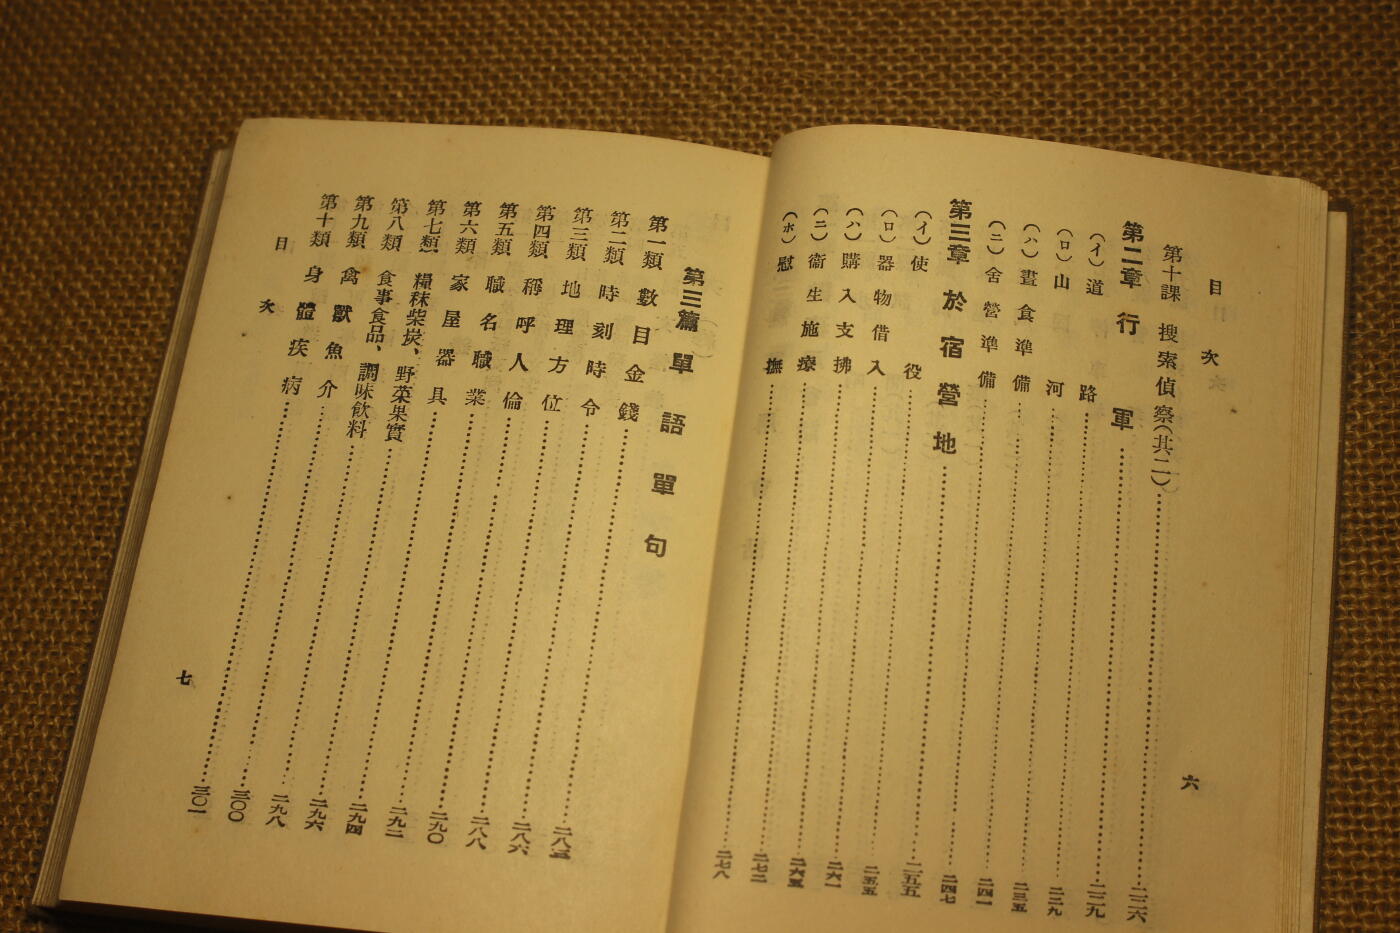 目次
六
第十課 搜索偵察(其二)……二二六
第二章 行軍……二二九
(イ)道路……二二九
(ロ)山河……二三五
(ハ)晝食準備……二四一
(ニ)舍營準備……二四七
第三章 於宿營地……二五五
(イ)使役……二五五
(ロ)器物借入……二六一
(ハ)購入支拂……二六五
(ニ)衞生施療……二七二
(ホ)慰撫……二七八
第三篇 單語單句
第一類 數目金錢……二八五
第二類 時刻時令……二八六
第三類 地理方位……二八八
第四類 稱呼人倫……二九〇
第五類 職名職業……二九二
第六類 家屋器具……二九四
第七類 糧秣柴炭、野菜果實……二九六
第八類 食事食品、調味飲料……二九八
第九類 禽獸魚介……三〇〇
第十類 身體疾病……三〇一
目次
七